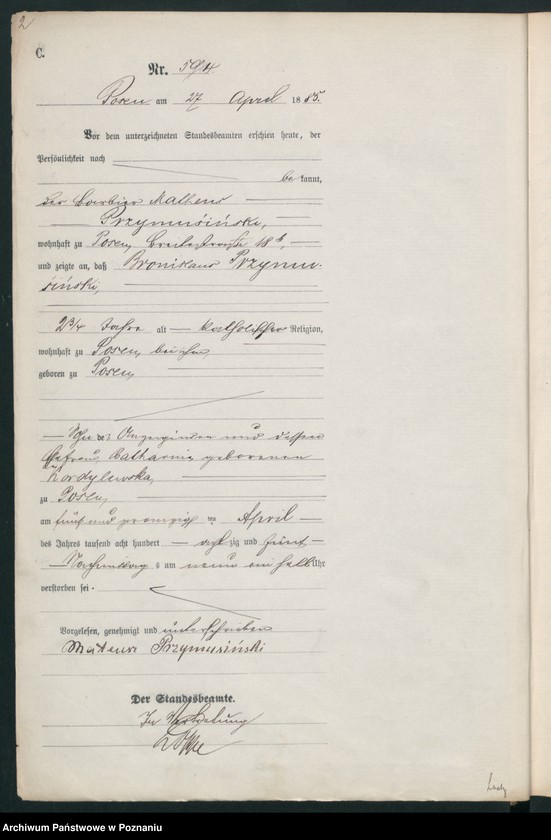 2
C.
Nr. 594
Posen am 27 April 1885.
Vor dem unterzeichneten Standesbeamten erschien heute, der
Persönlichkeit nach
bekannt,
der Barbier Matheus
Przymusiński,
wohnhaft zu Posen, Breitestraße 18b,
und zeigte an, daß Bronislaus Przymu-
siński,
2 3/4 Jahre alt katholischer Religion,
wohnhaft zu Posen, bei ihm
geboren zu Posen,
Sohn des Anzeigenden und dessen
Ehefrau, Catharina geborenen
Kordylewska,
zu Posen,
am fünf und zwanzig ten April
des Jahres tausend acht hundert achtzig und fünf
Nachmittags um neun ein halb Uhr
verstorben sei.
Vorgelesen, genehmigt und unterschrieben
Mateusz Przymusiński
Der Standesbeamte.
In Vertretung
Archiwum Państwowe w Poznaniu